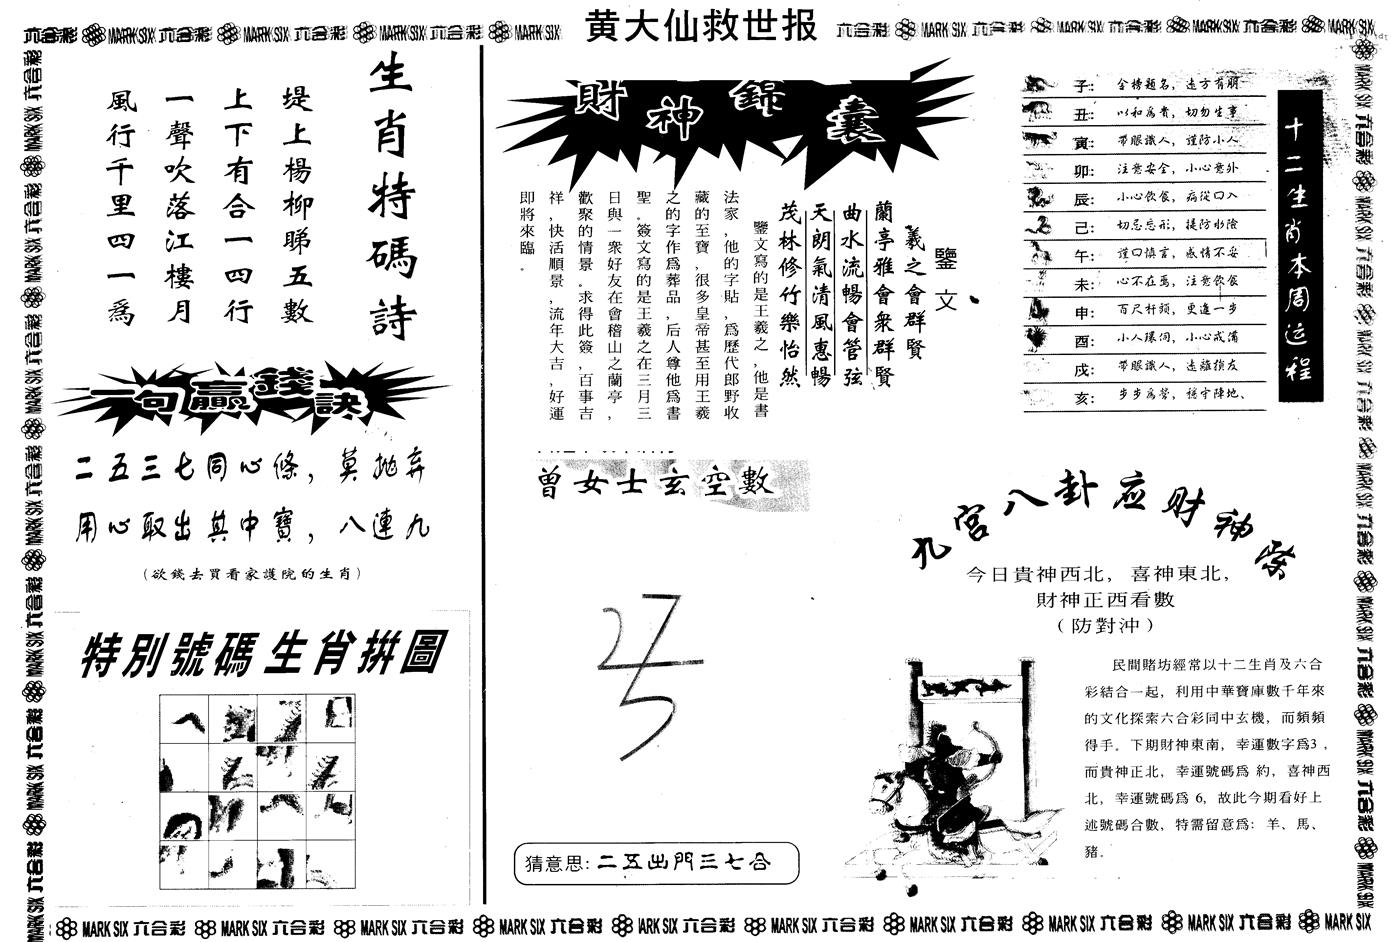 黄大仙救世报
生肖特碼詩
堤上楊柳睇五數
上下有合一四行
一聲吹落江樓月
風行千里四一爲
一句贏錢訣
二五三七同心條，莫拋弃
用心取出其中寶，八連九
(欲錢去買看家護院的生肖)
特別號碼生肖拼圖
財神錦囊
鑒文
羲之會群賢
蘭亭雅會衆群賢
曲水流暢會管弦
天朗氣清風惠暢
茂林修竹樂怡然
鑒文寫的是王羲之,他是書
法家,他的字貼,爲歷代郎野收
藏的至寶,很多皇帝甚至用王羲
之的字作爲葬品,后人尊他爲書
聖。簽文寫的是王羲之在三月三
日與一衆好友在會稽山之蘭亭,
歡聚的情景。求得此簽,百事吉
祥,快活順景,流年大吉,好運
即將來臨。
曾女士玄空數
猜意思: 二五出門三七合
十二生肖本周运程
子: 金榜題名，遠方有朋
丑: 以和爲貴，切勿生事
寅: 帶眼識人，謹防小人
卯: 注意安全，小心意外
辰: 小心飲食，病從口入
己: 切忌忘形，提防水險
午: 謹口慎言，感情不妥
未: 心不在焉，注意飲食
申: 百尺杆頭，更進一步
酉: 小人環伺，小心戒備
戌: 帶眼識人，遠離損友
亥: 步步爲營，穩守陣地、
九宮八卦应財神
今日貴神西北，喜神東北，
財神正西看數
（防對沖）
民間賭坊經常以十二生肖及六合
彩結合一起，利用中華寶庫數千年來
的文化探索六合彩同中玄機，而頻頻
得手。下期財神東南，幸運數字爲3，
而貴神正北，幸運號碼爲 約，喜神西
北，幸運號碼爲 6，故此今期看好上
述號碼合數，特需留意爲：羊、馬、
豬．
MARK SIX 六合彩 MARK SIX 六合彩 MARK SIX 六合彩 MARK SIX 六合彩 IARK SIX 六合彩 MARK SIX 六合彩 MARK SIX 六合彩 MARK SIX 六合彩 MARK SIX 六合彩 MARK SIX